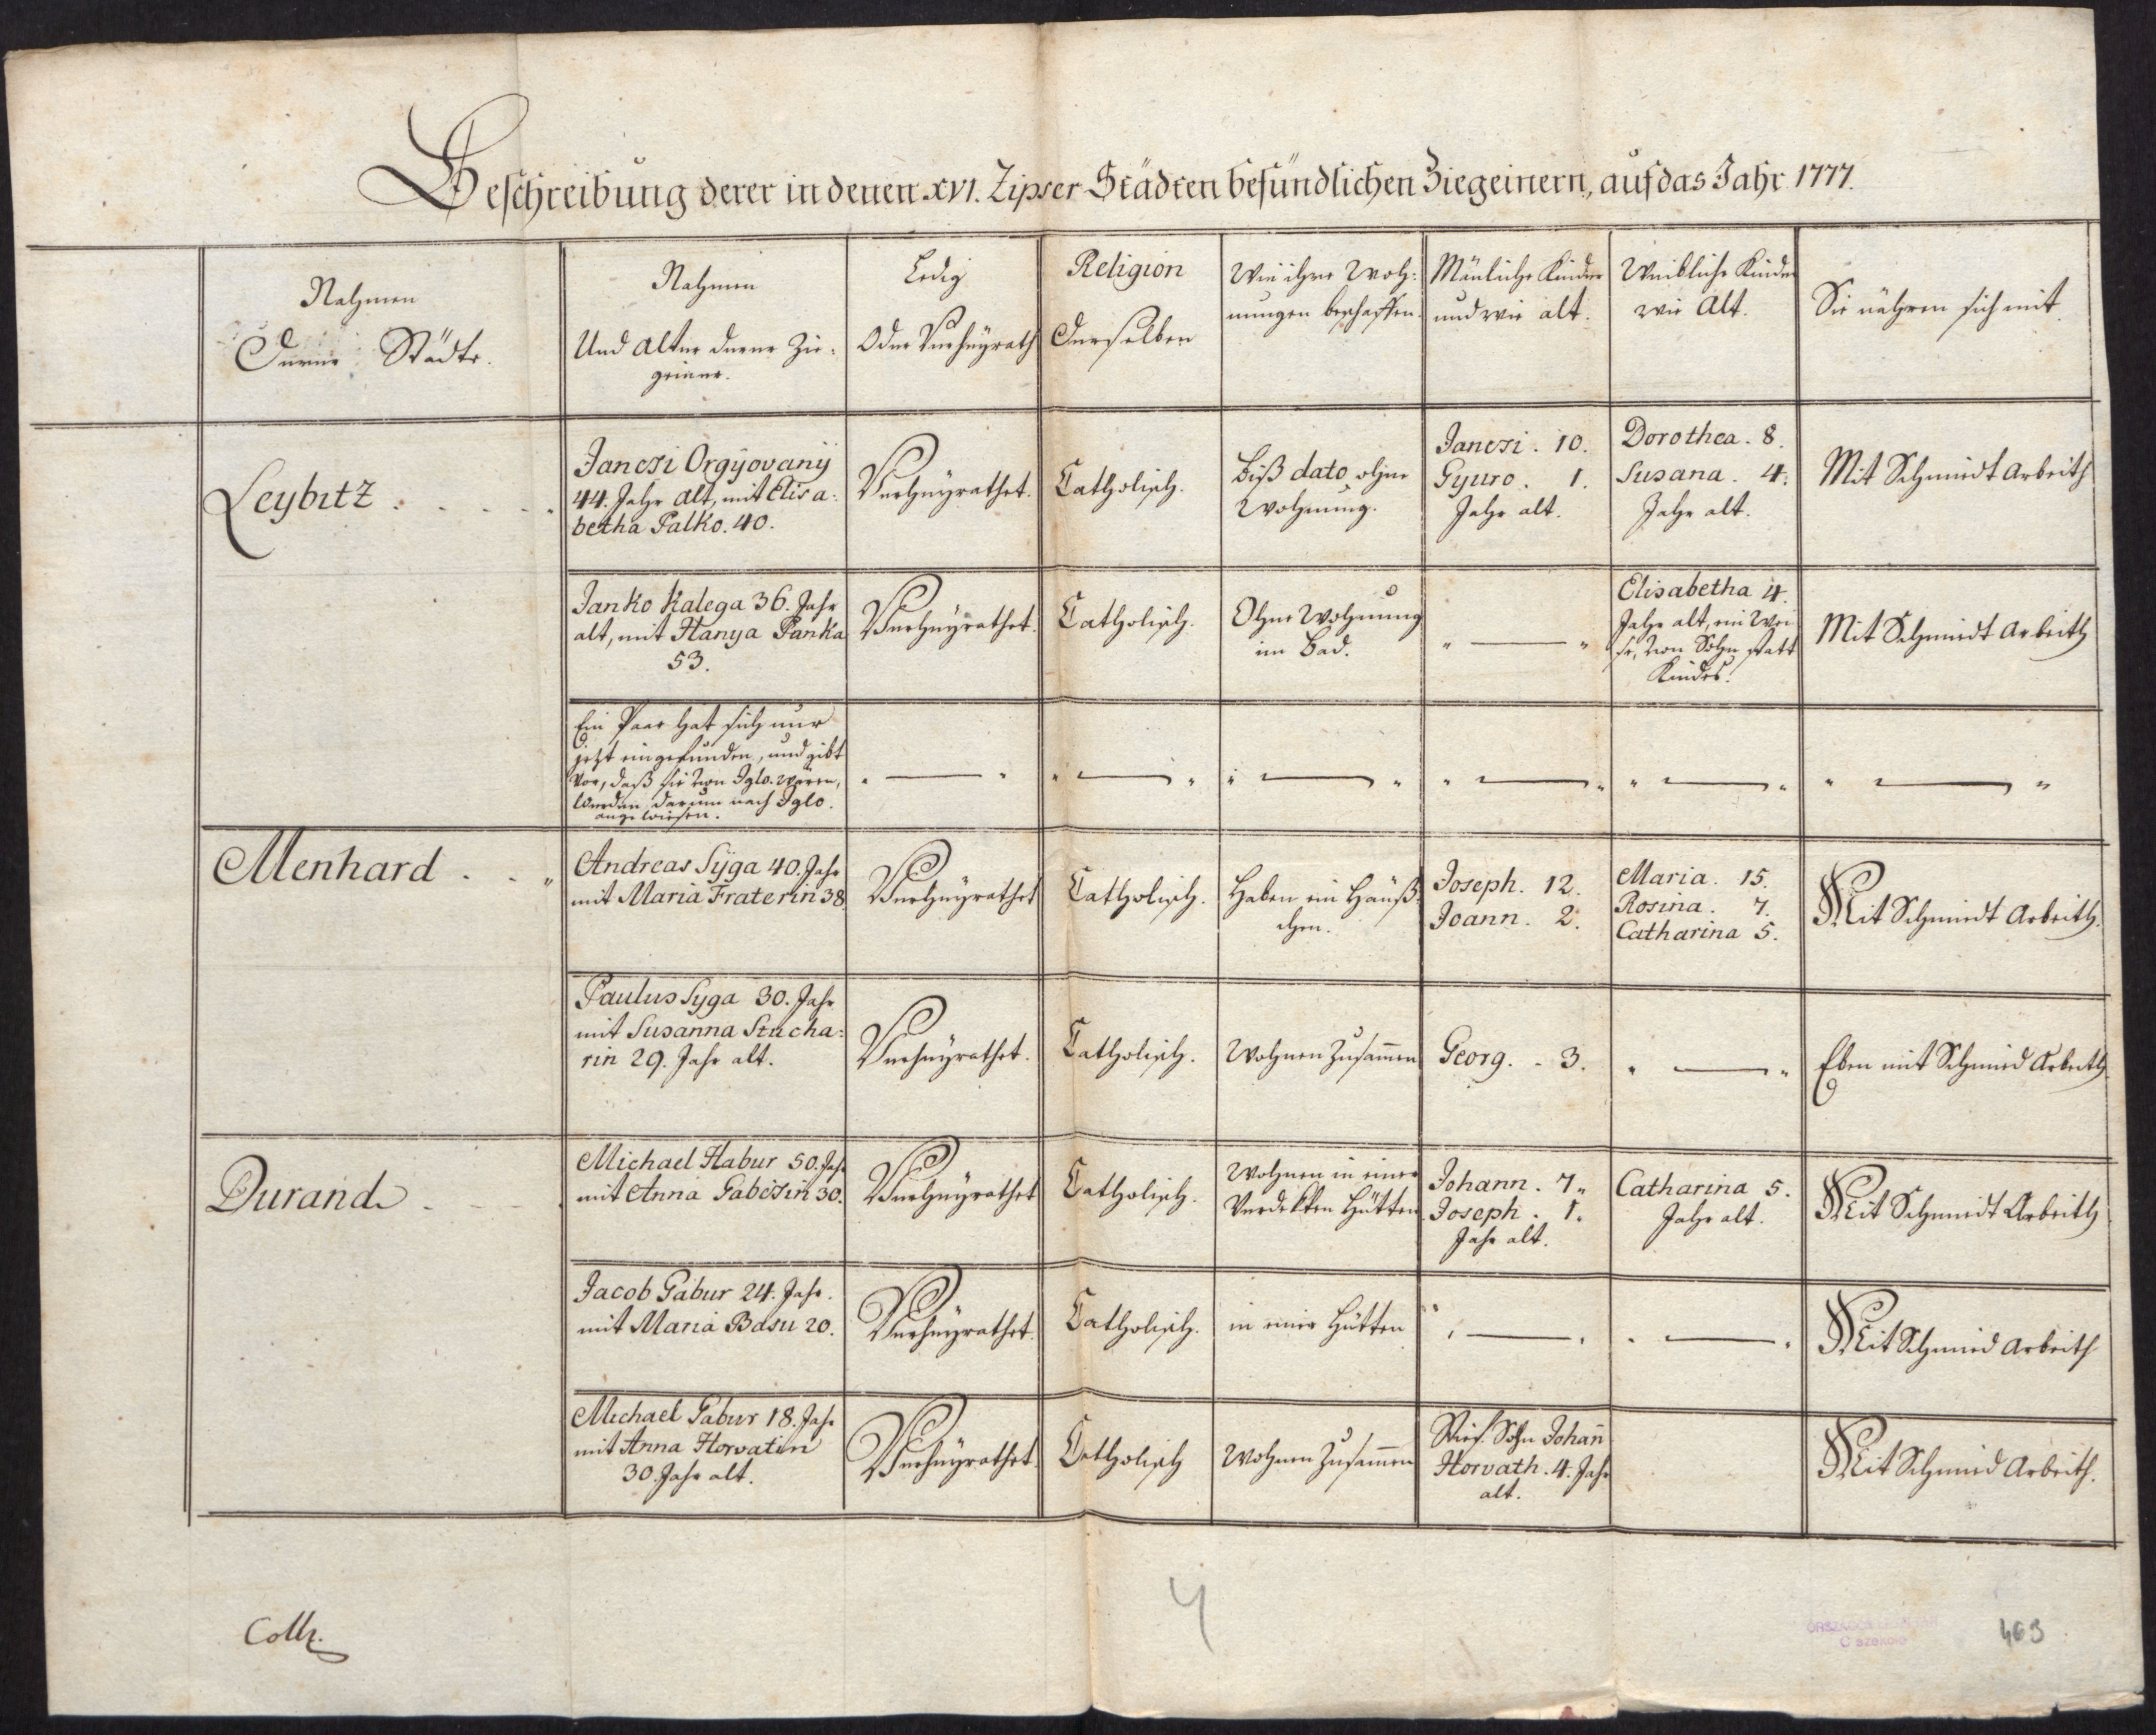 Beschreibung derer in denen XVI. Zipser Städten befündlichen Ziegeinern, auf das Jahr 1777.
Nahmen
Derer Städte.
Nahmen
Und Alter derer Zie:
geiner.
Ledig
Oder Verheyrath
Religion
Derselben
Wie ihre Woh:
nungen beschaffen.
Mänliche Kinder
und wie alt.
Weibliche Kinder
wie Alt.
Sie nähren sich mit.
Leybitz . . . . .
Janczi Orgÿovanÿ
44. Jahr alt, mit Elisa:
betha Palko. 40.
Verheyrathet.
Catholisch.
Biß dato ohne
Wohnung.
Janczi . 10.
Gyuro . 1.
Jahr alt.
Dorothea . 8.
Susana . 4.
Jahr alt.
Mit Schmiedt Arbeith
Janko Kalega 36. Jahr
alt, mit Hanya Panka
53.
Verheyrathet.
Catholisch.
Ohne Wohnung
im Bad.
" — "
Elisabetha 4.
Jahr alt, ein Wei
se, von Sohn statt
Kindes.
Mit Schmiedt Arbeith
Ein Paar hat sich nur
jetzt eingefunden, und gibt
vor, daß sie von Iglo. wären,
werden darum nach Iglo.
angewiesen.
" — "
" — "
" — "
" — "
" — "
" — "
Menhard . . "
Andreas Sÿga 40. Jahr
mit Maria Fraterin 38.
Verheyrathet
Catholisch.
Haben ein Häuß:
chen.
Joseph. 12.
Joann. 2.
Maria. 15.
Rosina. 7.
Catharina 5.
Mit Schmiedt Arbeith.
Paulus Sÿga 30. Jahr
mit Susanna Stucha:
rin 29. Jahr alt.
Verheyrathet.
Catholisch.
Wohnen Zusam̄en
Georg. - 3.
" — "
Eben mit Schmied Arbeith
Durand . - - -
Michael Habur 50. Jahr
mit Anna Gabczin 30.
Verheyrathet
Catholisch.
Wohnen in einer
Verdekten Hütten
Johann . 7 "
Joseph . 1.
Jahr alt.
Catharina 5.
Jahr alt.
Mit Schmiedt Arbeith
Jacob Gabur 24. Jahr.
mit Maria Basu 20.
Verheyrathet.
Catholisch.
in einer Hütten
" — "
" — "
Mit Schmied Arbeith
Michael Gabur 18. Jahr
mit Anna Horvatin
30. Jahr alt.
Verheyrathet.
Catholisch
Wohnen Zusam̄en
Stief. Sohn Johan̄
Horvath. 4. Jahr
alt.
Mit Schmied Arbeith.
4
463